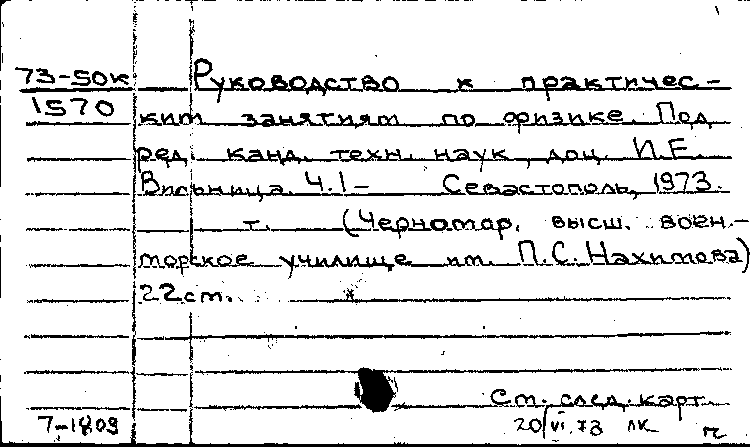 73-50к Руководство к практичес-
1570 ким занятиям по физике. Под
ред. канд. техн. наук, доц. И.Е.
Вильница. Ч.1- Севастополь, 1973.
т. (Черномор. высш. воен.-
морское училище им. П.С. Нахимова)
22 см.
См. след. карт.
7-1809 20/VI.73 лк